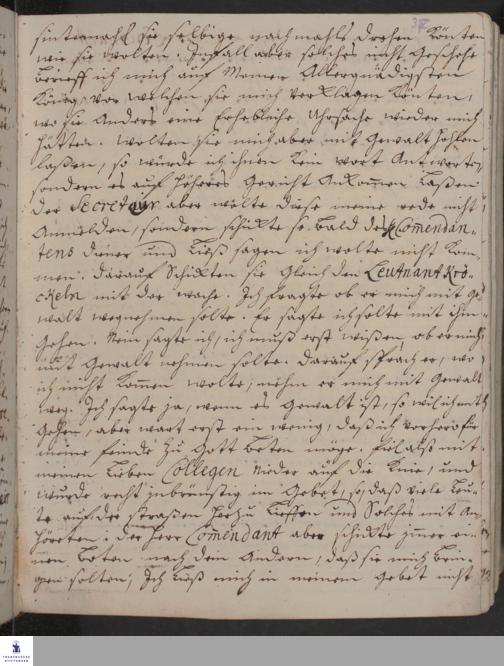 37
sintemahl sie selbige nachmahls drehen könten
wie sie wolten. Im fall aber solches nicht geschehe
berieff ich mich auf Meinen Allergnädigsten
König, vor welchen sie mich verklagen könten,
wo sie anders eine erhebliche Uhrsache wieder mich
hätten. Wolten sie mich aber mit Gewalt hohlen
laßen, so würde ich ihnen kein wort Antworten
sondern es auf höheres Gericht Ankommen laßen
der Secretair aber wolte diese meine rede nicht
Anmelden, sondern schickte so bald des Commendan-
tens diener und ließ sagen ich wolte nicht kom-
men. darauf schickten sie gleich den Leutnant Krö-
ckeln mit der wache. Ich fragte ob er mich mit Ge-
walt wegnehmen solte. Er sagte ich solte mit ihm
gehen. Nein sagte ich, ich muß erst wißen, ob er mich
mit Gewalt nehmen solte. darauf sprach er, wo
ich nicht kommen wolte, nehm er mich mit Gewalt
weg. Ich sagte ja, wenn es Gewalt ist, so wil ich mit
gehen, aber wart erst ein wenig, daß ich vorhero für
meine feinde zu Gott beten möge. fiel also mit
meinen lieben Collegen nieder auf die Knie, und
wurde recht inbrünstig im Gebet, so, daß viele Leu-
te auf der straßen herzu lieffen und Solches mit An-
höreten. der Herr Commendant aber schickte immer ei-
nen Boten nach dem Andern, daß sie mich brin-
gen solten, Ich ließ mich in meinem Gebet nicht
FRANCKESCHE
STIFTUNGEN